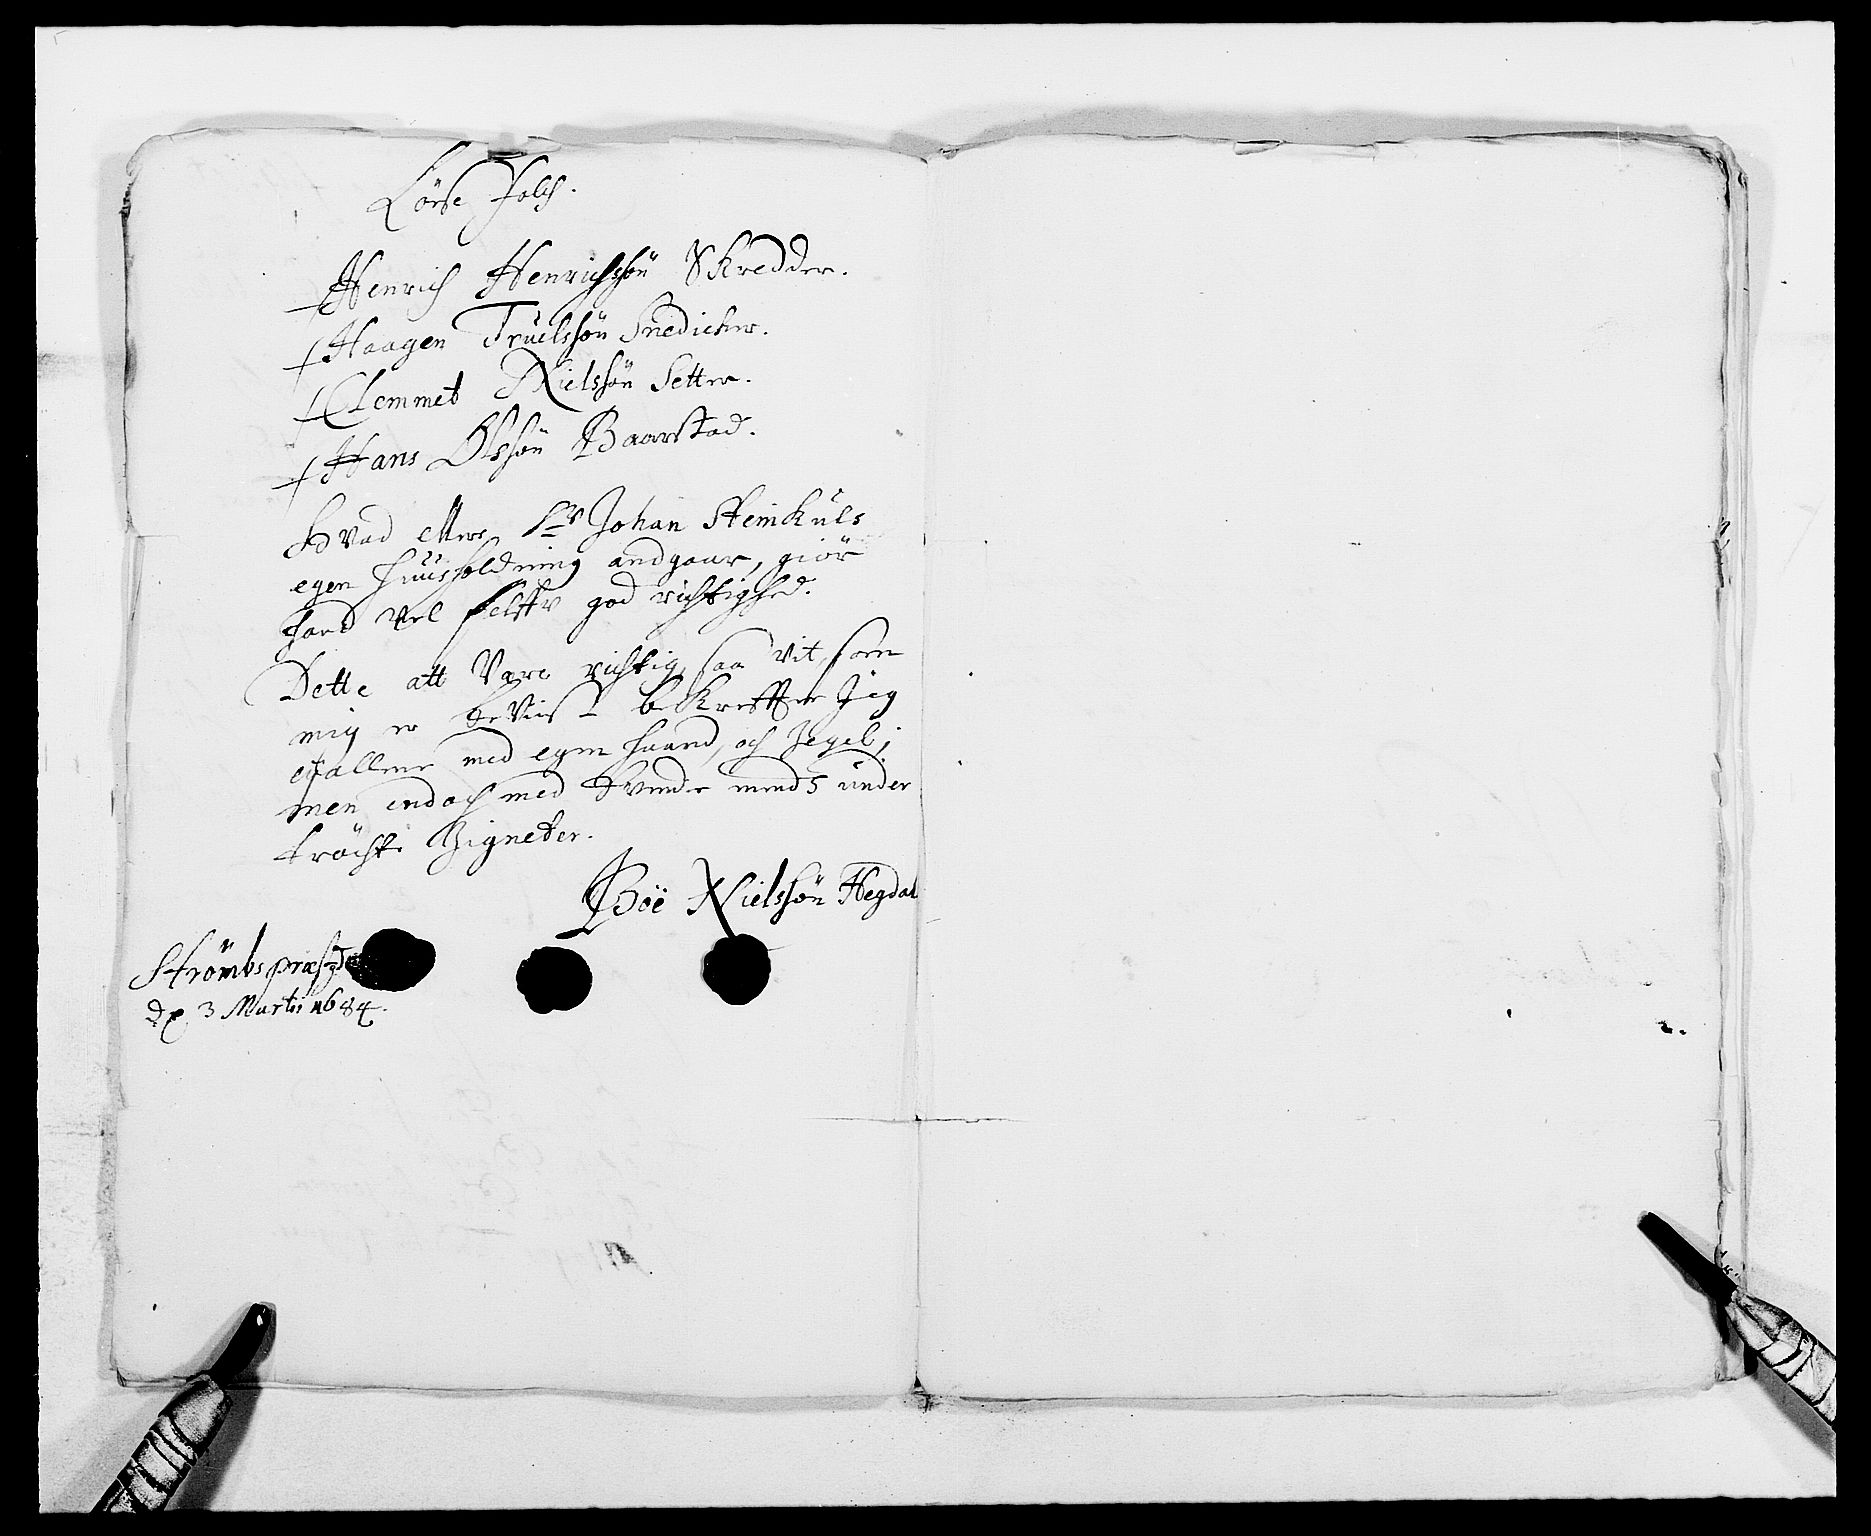 Löese Folch.
Henrich Henrichssön Skredder.
Haagen Truelssön Snedicher.
Clemmet Nielssön Setter.
Hans Olssön Baarstad.
Hvad ellers Sr Johan Steinkuls
egen huusholdning andgaar, giör
hand vel selffv god richtighed.
Dette att Være richtig, saa vit som
mig er beviist bekreffter Jeg
ej allene med egen haand, och Segel;
men endoch med tvende mends under
tröchte Zigneter.
Boë Nielssön Hegdal
Strömbs præstegd
d 3 Martii 1684.